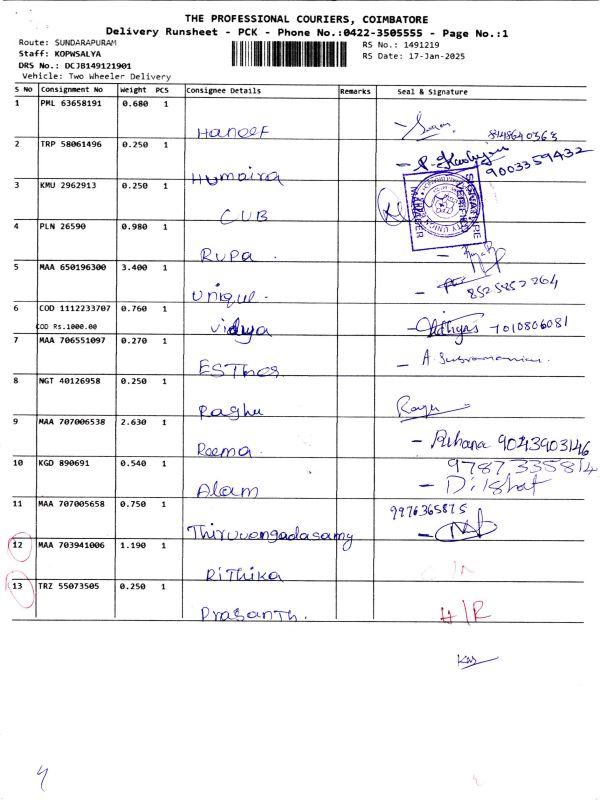 THE PROFESSIONAL COURIERS, COIMBATORE
Delivery Runsheet - PCK - Phone No.:0422-3505555 - Page No.:1
Route: SUNDARAPURAM
RS No.: 1491219
Staff: KOPWSALYA
RS Date: 17-Jan-2025
DRS No.: DCJB149121901
Vehicle: Two Wheeler Delivery
S No Consignment No Weight PCS Consignee Details Remarks Seal & Signature
1 PML 63658191 0.680 1 Haneef
2 TRP 58061496 0.250 1 Humaira 9003359432
3 KMU 2962913 0.250 1 CUB
SIGNATURE VERIFIED MANAGER
4 PLN 26590 0.980 1 Rupa
5 MAA 650196300 3.400 1 Unique 8525852264
6 COD 1112233707 0.760 1 Vidhya 7010806081
COD Rs.1000.00
7 MAA 706551097 0.270 1 ESTher A. Subramanian
8 NGT 40126958 0.250 1 Raghu
9 MAA 707006538 2.630 1 Reema - Rihana 9043903146
10 KGD 890691 0.540 1 Alam 9787335814
- Dilshat
11 MAA 707005658 0.750 1 Thiruvengadasamy 9976365875
12 MAA 703941006 1.190 1 Rithika
13 TRZ 55073505 0.250 1 Prasanth. H/R